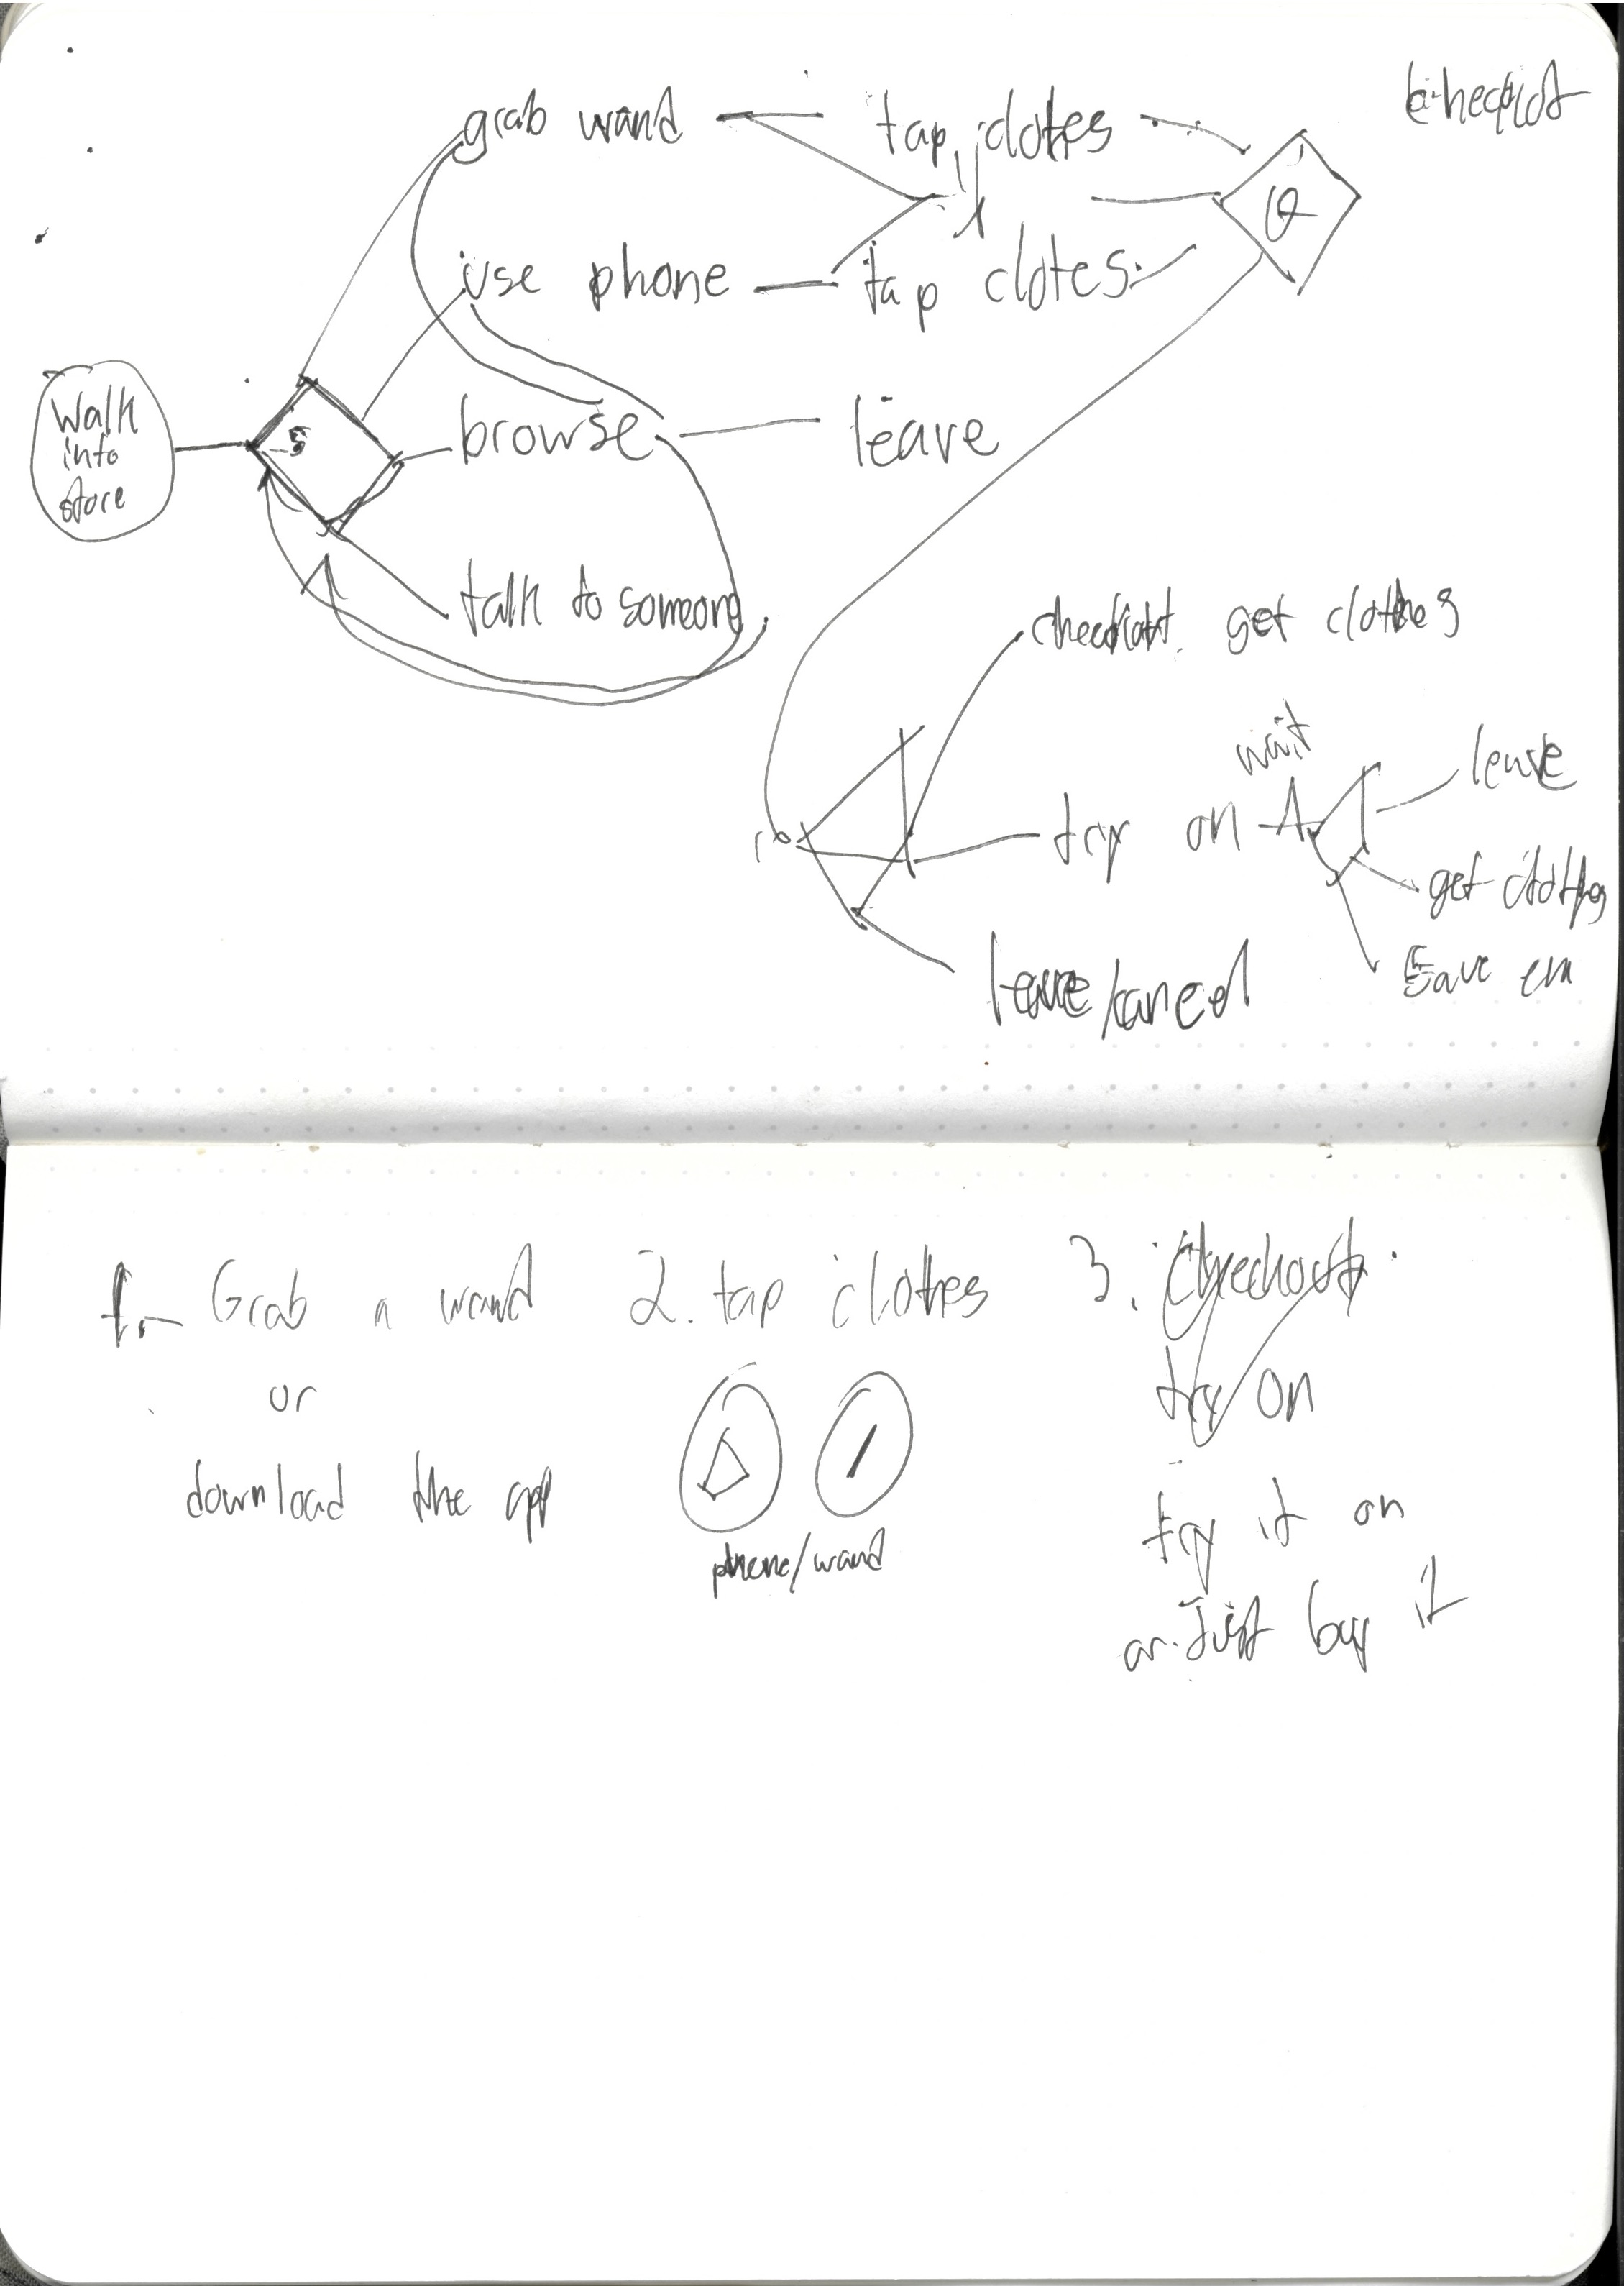 grab wand
tap clothes
use phone
tap clotes
Walk
into
store
browse
leave
talk to someone
checkout get clothes
wait
try on
leave
get clothes
save em
leave/cancel
1. Grab a wand
or
download the app
2. tap clothes
phone/wand
3. Checkout
try on
try it on
or Just buy it